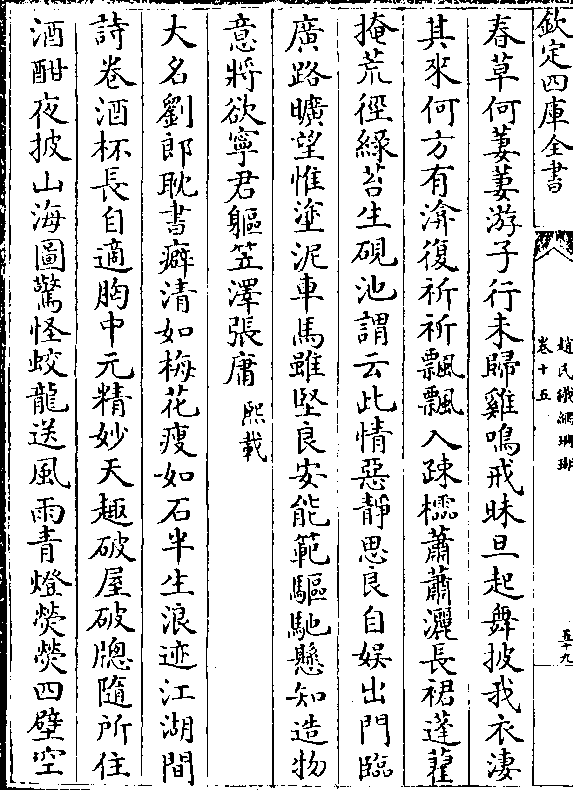 欽定四庫全書
趙氏鐵網珊瑚
卷十五
五十九
春草何萋萋游子行未歸雞鳴戒昧旦起舞披我衣淒
其來何方有渰復祈祈飄飄入疎櫺蕭蕭灑長裾蓬藋
掩荒徑緑苔生硯池謂云此情惡靜思良自娱出門臨
廣路曠望惟塗泥車馬雖堅良安能範驅馳懸知造物
意將欲寧君軀笠澤張庸熙載
大名劉郎耽書癖清如梅花瘦如石半生浪迹江湖間
詩卷酒杯長自適胸中元精妙天趣破屋破牕隨所住
酒酣夜披山海圖驚怪蛟龍送風雨青燈熒熒四壁空